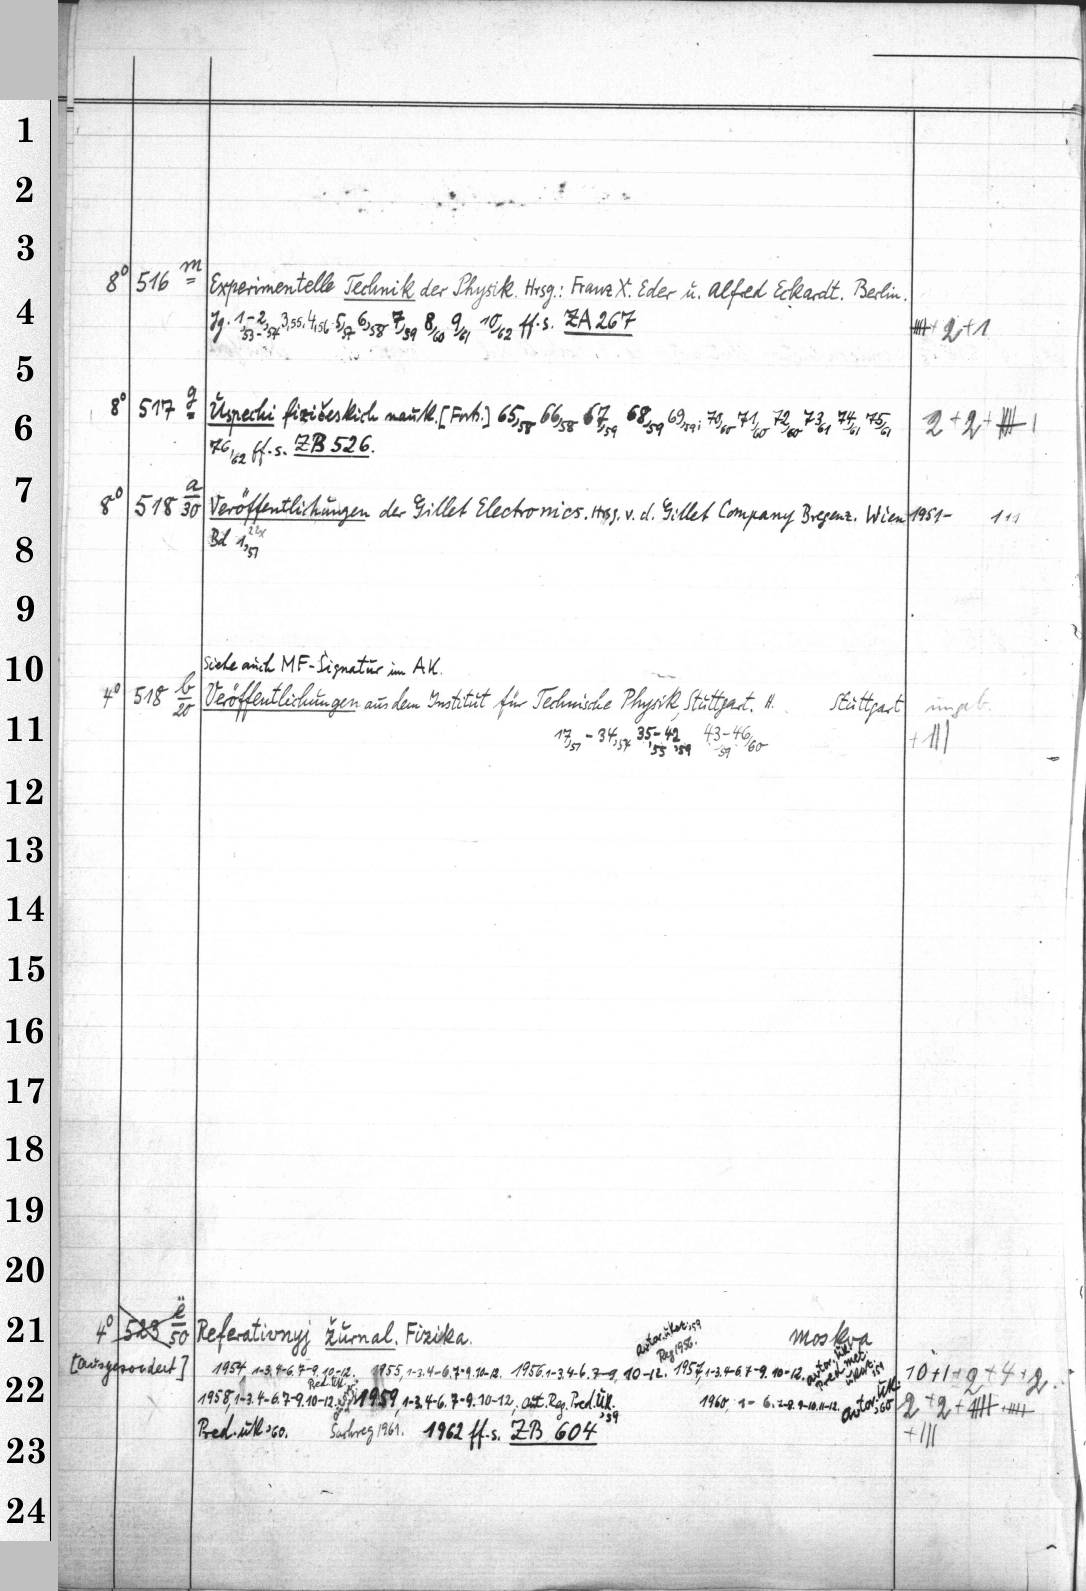 1
2
3
8° 516 m Experimentelle Technik der Physik. Hrsg.: Franz X. Eder u. Alfred Eckardt. Berlin.
4 Jg. 1-2, 53-54 3,55. 4,56. 5,57 6,58 7,59 8/60 9/61 10/62 ff. s. ZA 267 + 2 + 1
5
8° 517 g Uspechi fizičeskich nauk. [Forts.] 65,58 66,58 67,59 68,59 69,59; 70,60 71/60 72/60 73/61 74/61 75/61 2 + 2 +
6
76,62 ff. s. ZB 526.
7
8° 518 a/30 Veröffentlichungen der Gillet Electronics. Hrsg. v. d. Gillet Company Bregenz. Wien 1951-
8 Bd 1,51
9
10 Siehe auch MF-Signatur im AK.
4° 518 b/20 Veröffentlichungen aus dem Institut für Technische Physik, Stuttgart. H. Stuttgart ungeb.
11 17,51 - 34,54 35-42 ,55 ,59 43-46 59 /60 + III
12
13
14
15
16
17
18
19
20
21 4° 523 e/50 Referativnyj žurnal. Fizika. Moskva
[ausgesondert] 1954, 1-3. 4-6. 7-9. 10-12. 1955, 1-3. 4-6. 7-9. 10-12. 1956. 1-3. 4-6. 7-9. 10-12. 1957, 1-3. 4-6. 7-9. 10-12. 10+1+2+4+2.
22 1958, 1-3. 4-6. 7-9. 10-12. 1959, 1-3, 4-6. 7-9. 10-12, 1960, 1- 6. 7-8. 9-10. 11-12. 2 + 2 +
23 Pred. uk. 60. Sachreg 1961. 1962 ff. s. ZB 604 + III
24